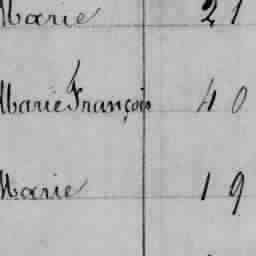 Marie 21
Marie François 40
Marie 19